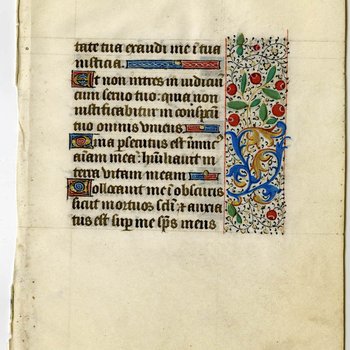 tate tua exaudi me i tua
iusticia.
Et non intres in iudiciu
cum servo tuo: quia non
iustificabitur in conspctu
tuo omnis vivens
Quia psecutus est inimic
aiam mea: huiliavit in
terra vitam meam
Collocavit me i obscuris
sicut mortuos scli & anxia
tus est sup me sps meus